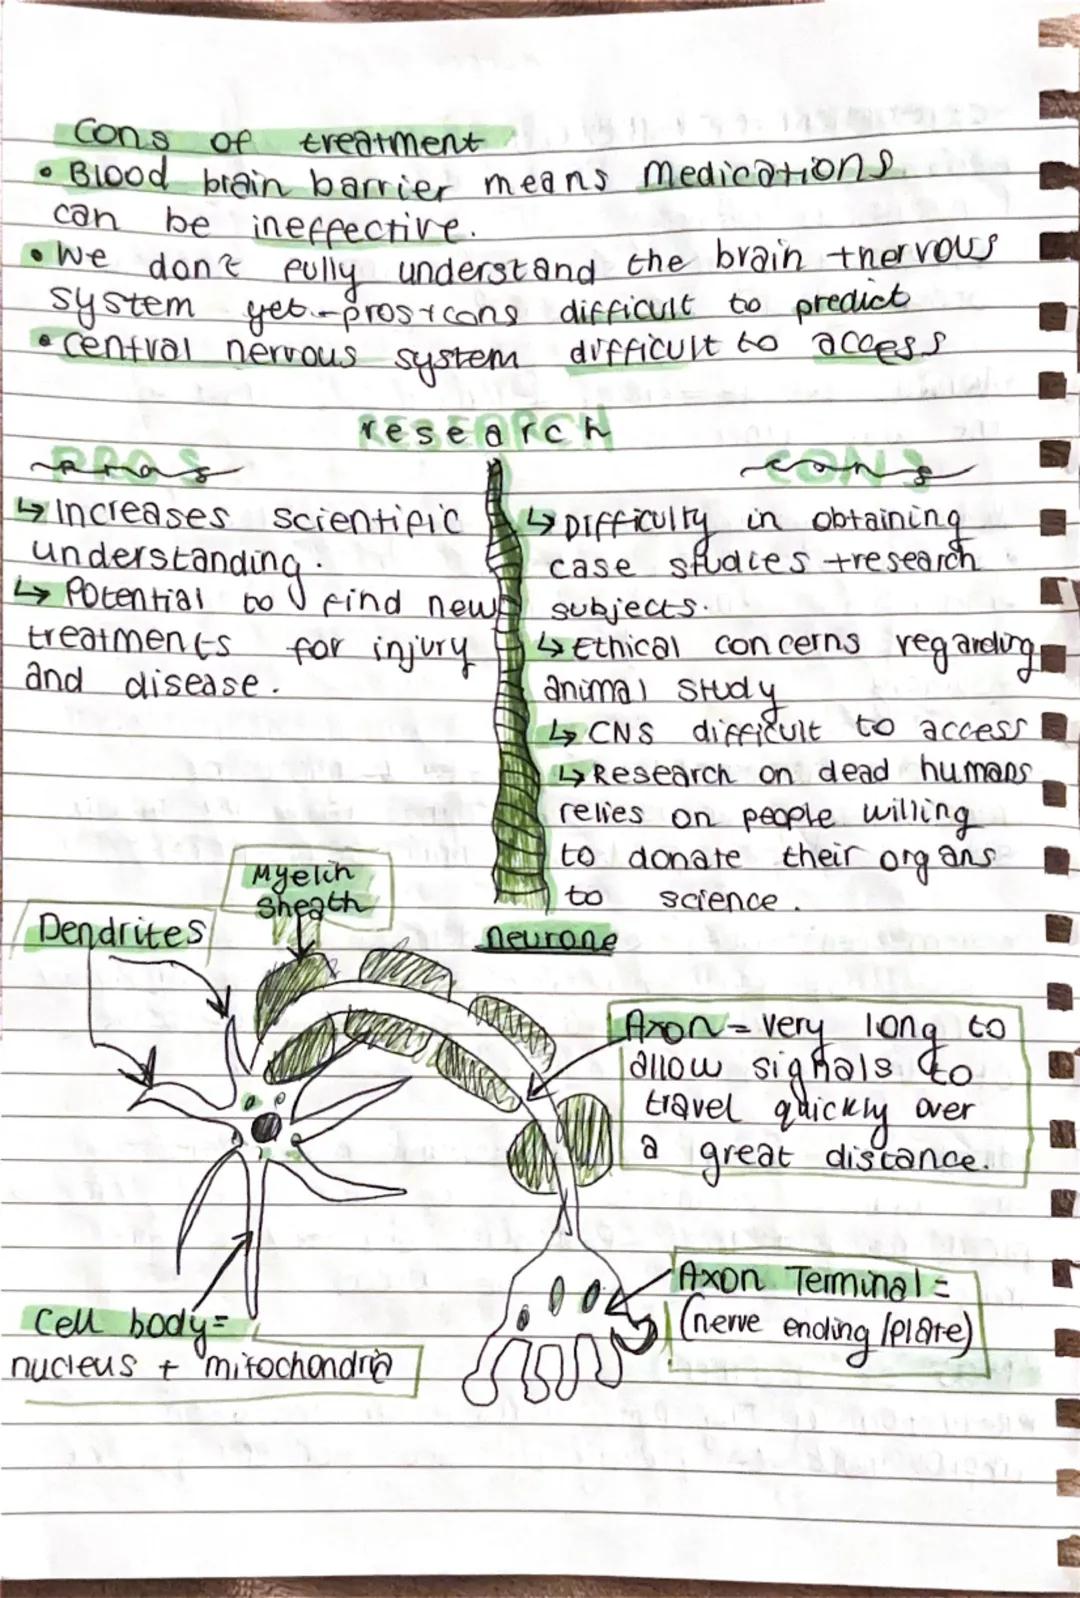 Cons of treatment
• Blood brain barrier means medications
can be ineffective.
• We don't fully understand the brain + nervous
system yet - pros + cons difficult to predict
• Central nervous system difficult to access
RESEARCH
research
PROS
pros
↳ Increases scientific
understanding.
↳ Potential to find new
treatments for injury
and disease.
CONS
cons
↳ Difficulty in obtaining
case studies + research
subjects.
↳ Ethical concerns regarding
animal study
↳ CNS difficult to access
↳ Research on dead humans
relies on people willing
to donate their organs
to science.
neurone
Myelin
Sheath
Dendrites
Axon = very long to
allow signals to
travel quickly over
a great distance.
Axon Terminal =
(nerve ending/plate)
Cell body =
nucleus + mitochondria